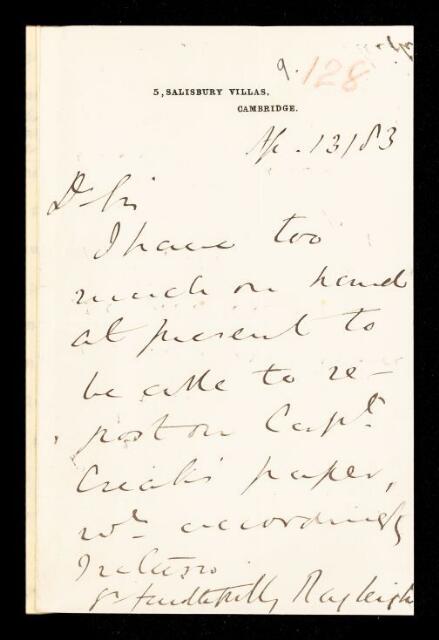 9. 128
5, SALISBURY VILLAS,
CAMBRIDGE.
Ap. 13/83
Dr Sir
I have too
much on hand
at present to
be able to re-
port on Capt.
Creak's paper,
wh accordingly
I return
yrs faithfully Rayleigh